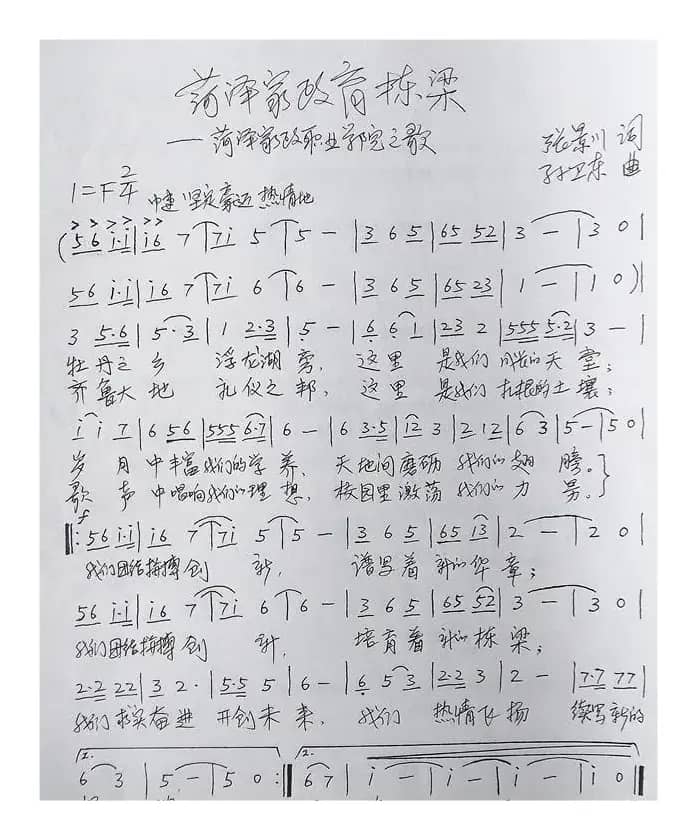 菏泽家政育栋梁
——菏泽家政职业学院之歌
张景川 词
孙卫东 曲
1=F 2/4 中速 坚定豪迈 热情地
(5 6 i·i | i6 7 | 7i 5 | 5 - | 3 6 5 | 65 52 | 3 - | 3 0 |
56 i·i | i6 7 | 7i 6 | 6 - | 3 6 5 | 65 23 | 1 - | 1 0 ) |
3 5·6 | 5·3 | 1 2·3 | 5 - | 6 6 1 | 23 2 | 555 5·2 | 3 - |
牡丹之乡 浮龙湖旁, 这里 是我们 成长的天堂;
齐鲁大地 礼仪之邦, 这里 是我们 扎根的土壤;
i i 7 | 6 56 | 555 6·7 | 6 - | 6 3·5 | 12 3 | 2 12 | 6 3 | 5 - | 5 0
岁月中丰富我们的学养, 天地间磨砺 我们的翅膀。
歌声中唱响我们的理想, 校园里激荡 我们的力量。}
f
‖: 56 i·i | i6 7 | 7i 5 | 5 - | 3 6 5 | 65 13 | 2 - | 2 0 |
我们团结拼搏创新, 谱写着新的华章;
56 i·i | i6 7 | 7i 6 | 6 - | 3 6 5 | 65 52 | 3 - | 3 0 |
我们团结拼搏创新, 培育着新的栋梁;
2·2 22 | 3 2· | 5·5 5 | 6 - | 6 5 3 | 2·2 3 | 2 - | 7·7 77 |
我们求实奋进 开创未来, 我们 热情飞扬 续写新的
1. 2.
6 3 | 5 - | 5 0 :‖ 6 7 | i - | i - | i - | i 0 ‖